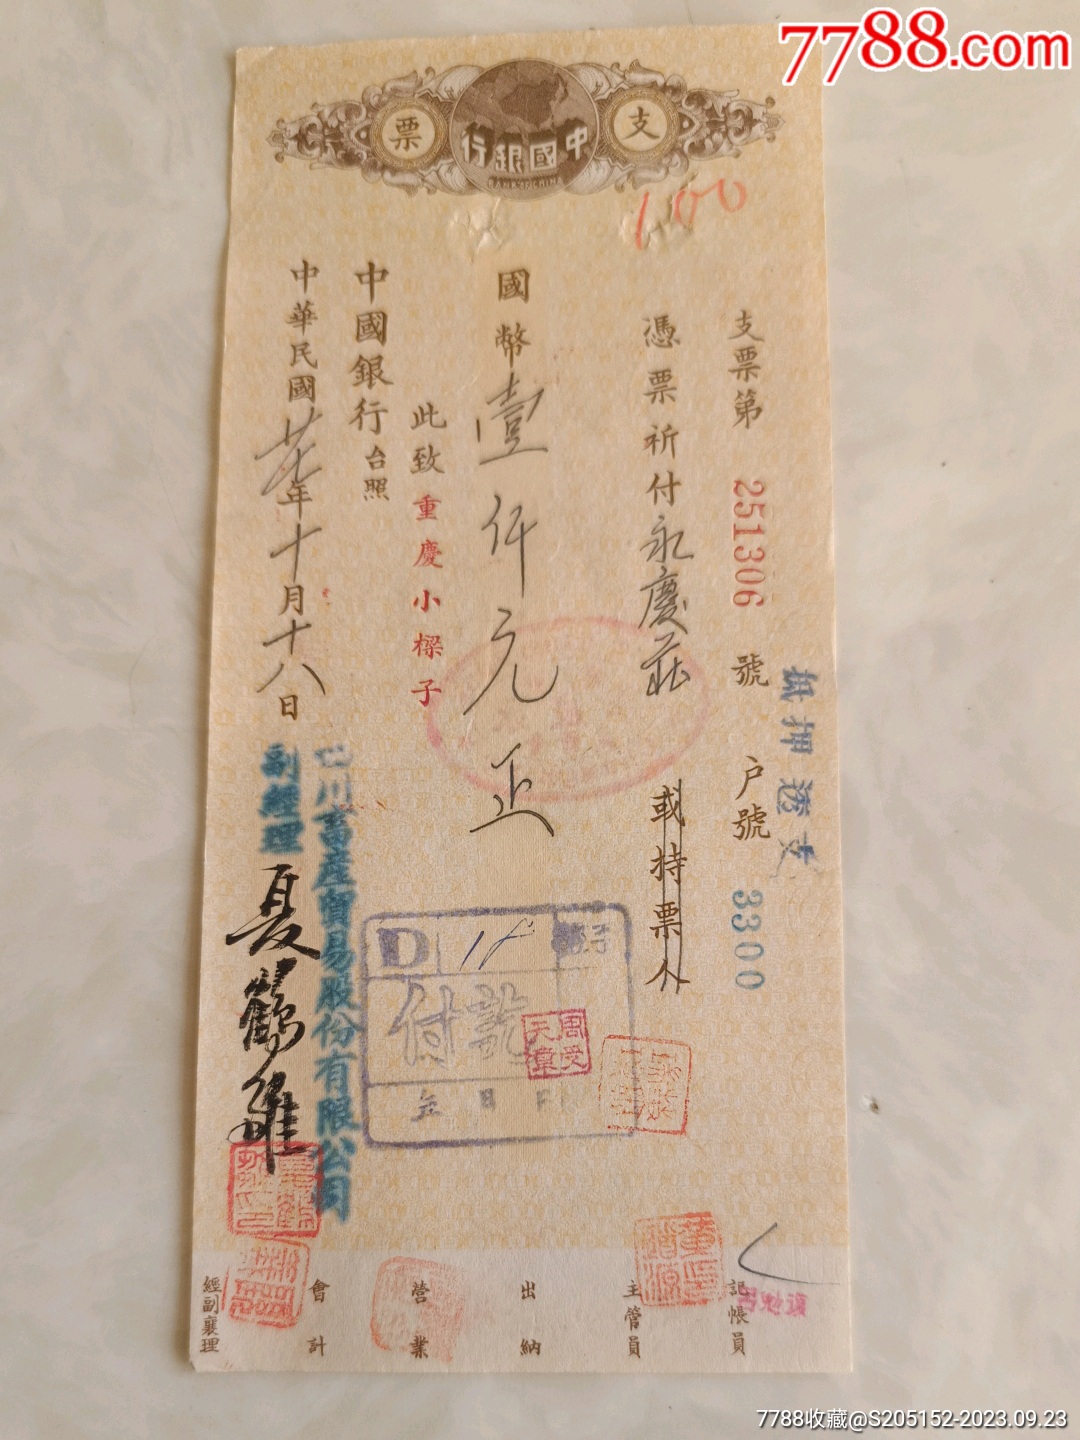 7788.com
支票
中國銀行
BANK OF CHINA
100
支票第 251306 號 户號 3300
抵押透支
憑票祈付永慶莊 或持票人
國幣壹仟元正
此致重慶小樑子
中國銀行台照
中華民國廿七年十月十八日
四川畜產貿易股份有限公司
副經理 夏鶴雒
D
付訖
周受天章
記帳員
主管員
出納
營業
會計
經副襄理
7788收藏@S205152-2023.09.23